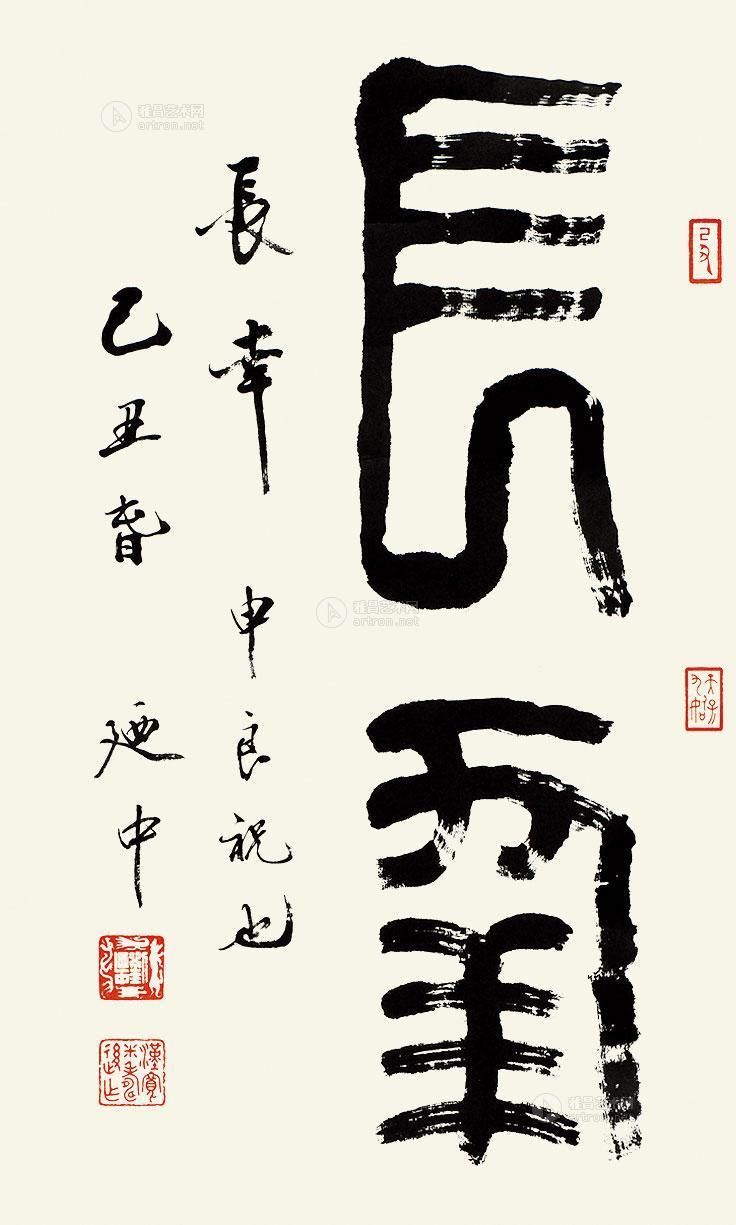 長幸
長幸 申良祝也
己丑春 廼中
雅昌艺术网
artron.net
雅昌艺术网
artron.net
雅昌艺术网
artron.net